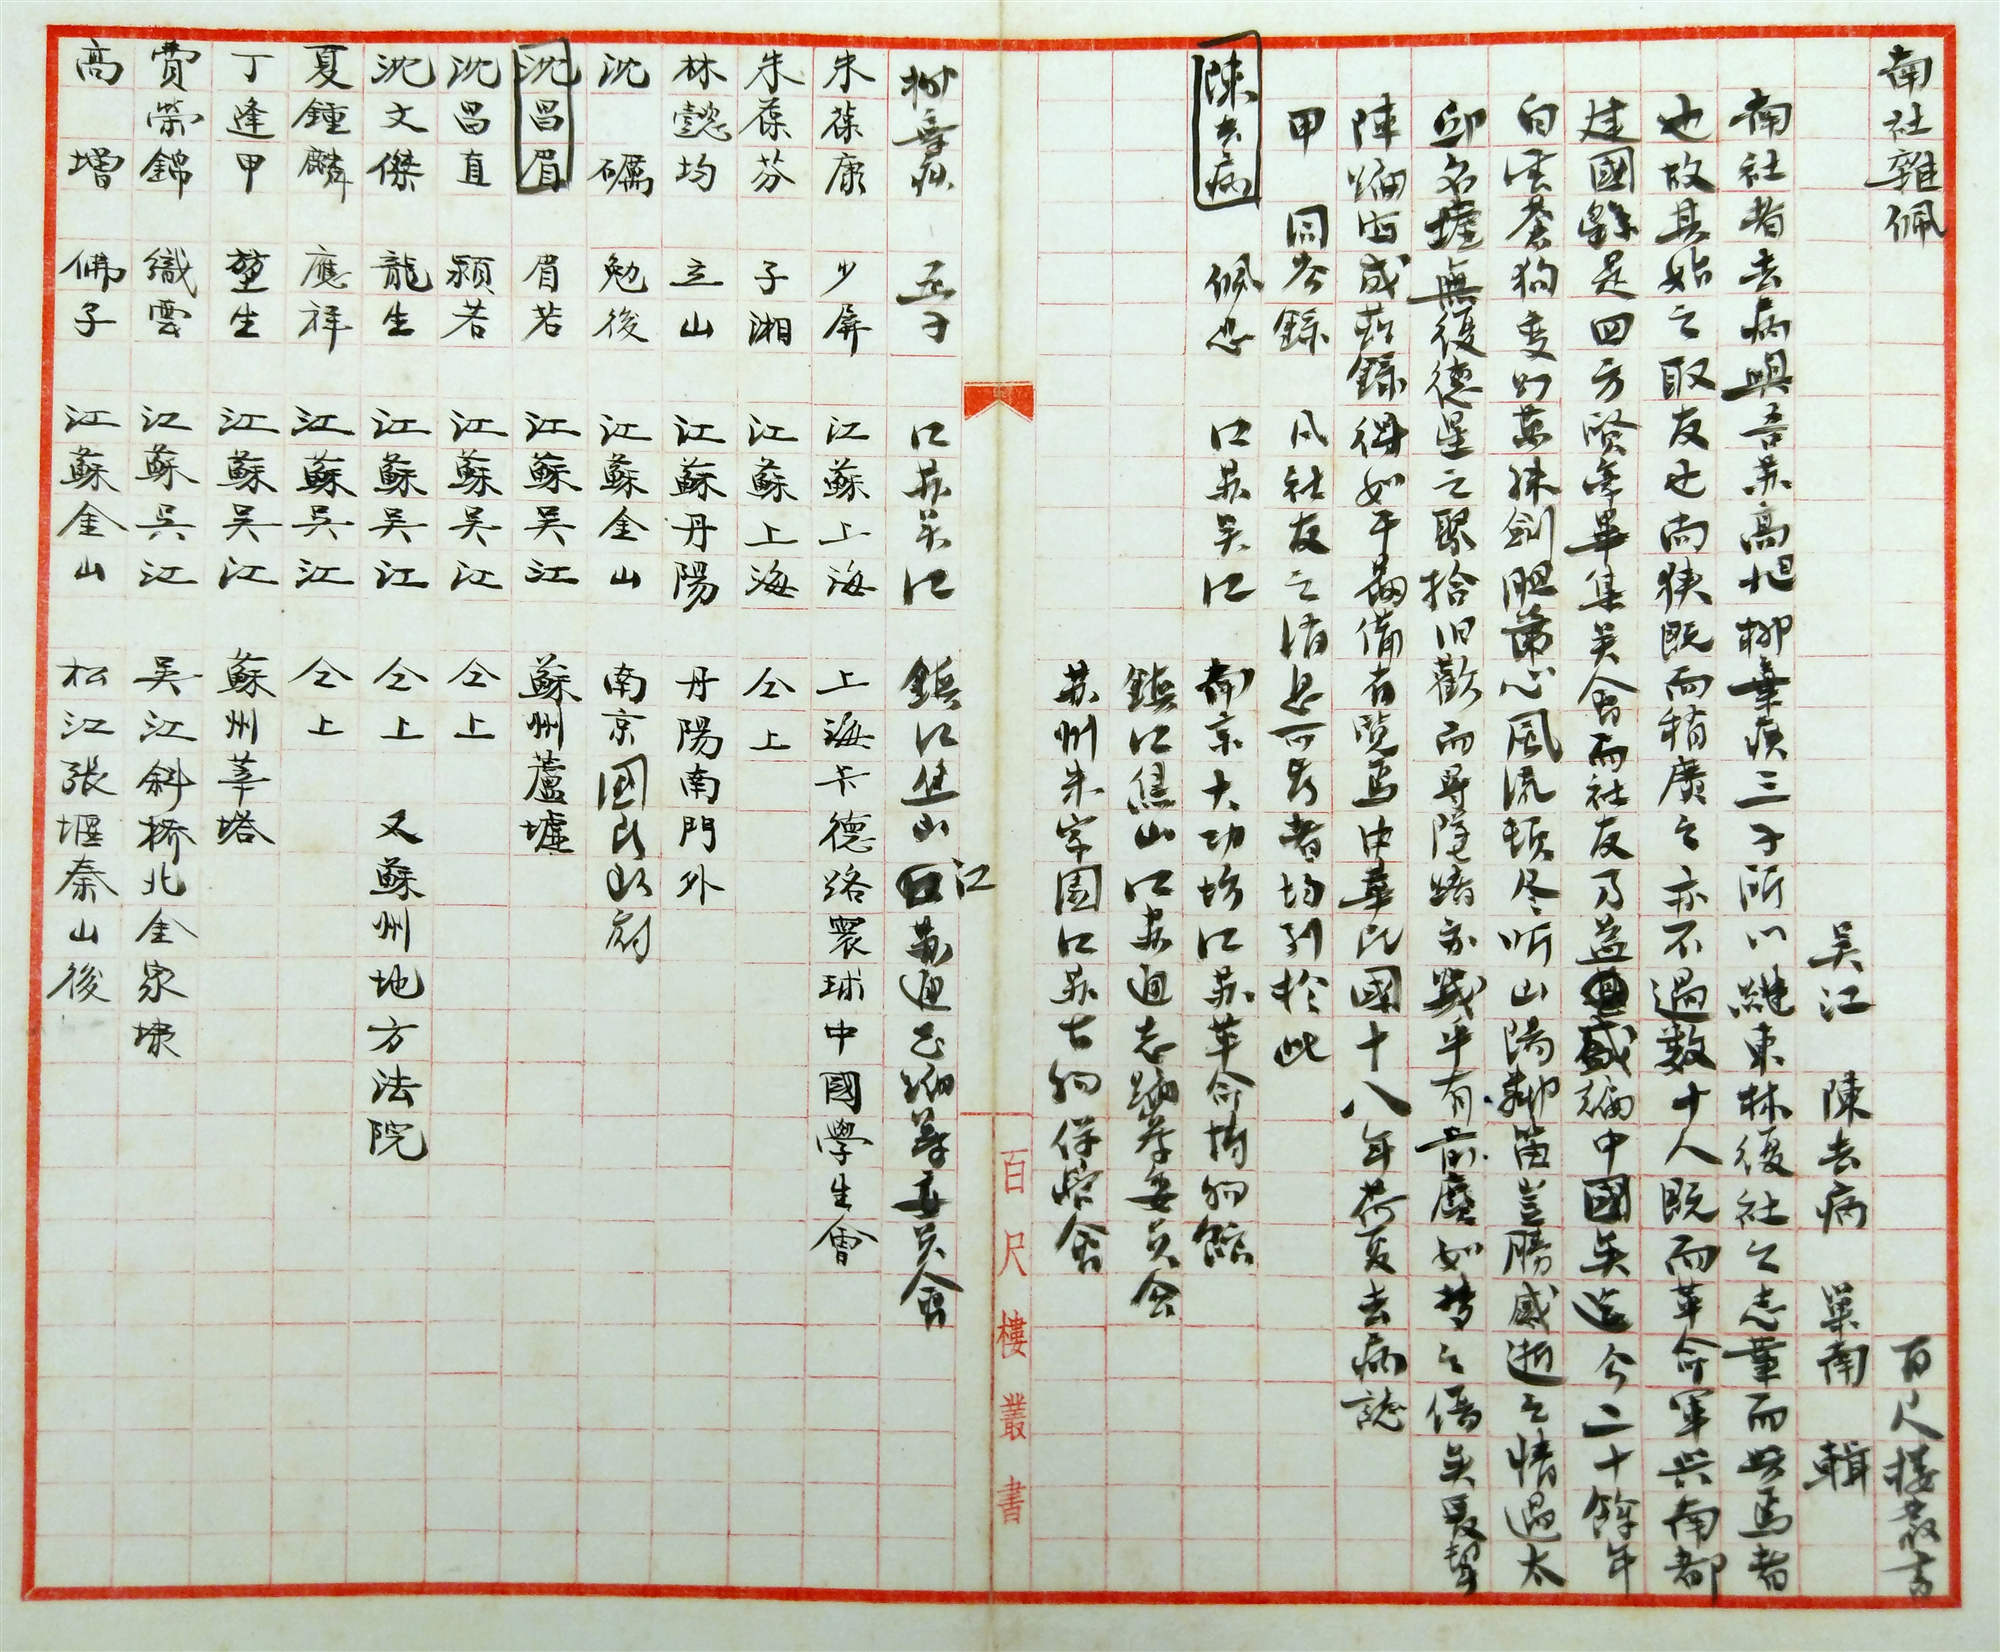 南社雜佩 百尺樓叢書
吳江 陳去病 巢南 輯
南社者去病與吾蘇高旭柳棄疾三子所以繼東林復社之志業而興焉者
也故其始之取友也尚狹既而稍廣之亦不過數十人既而革命軍興南都
建國繇是四方賢儁畢集吳會而社友乃益盛徧中國矣迄今二十餘年
白雲蒼狗變幻萬殊劍膽簫心風流頓盡聽山陽鄰笛豈勝感逝之情過太
邱名墟無復德星之聚拾旧歡而尋隆躅亦戞乎有前塵如夢之俉矣爰挈
陳編西成茲錄得如干最備省覽焉中華民國十八年荷夏去病誌
甲 同岑錄 凡社友之諸思可另者均列於此
陳去病 佩忍 江蘇吳江 南京大功坊江蘇革命博物館
鎮江焦山江蘇通志編纂委員會
蘇州朱家園江蘇古物保管會
百尺樓叢書
柳棄疾 亞子 江蘇吳江 鎮江焦山江蘇通志編纂委員會
朱葆康 少屏 江蘇上海 上海卡德路寰球中國學生會
朱葆芬 子湘 江蘇上海 仝上
林懿均 立山 江蘇丹陽 丹陽南門外
沈礪 勉後 江蘇金山 南京國民政府
沈昌眉 眉若 江蘇吳江 蘇州蘆墟
沈昌直 潁若 江蘇吳江 仝上
沈文傑 龍生 江蘇吳江 仝上 又蘇州地方法院
夏鍾麟 應祥 江蘇吳江 仝上
丁逢甲 堃生 江蘇吳江 蘇州莘塔
費榮錦 織雲 江蘇吳江 吳江斜橋北金家埭
高增 佛子 江蘇金山 松江張堰秦山後